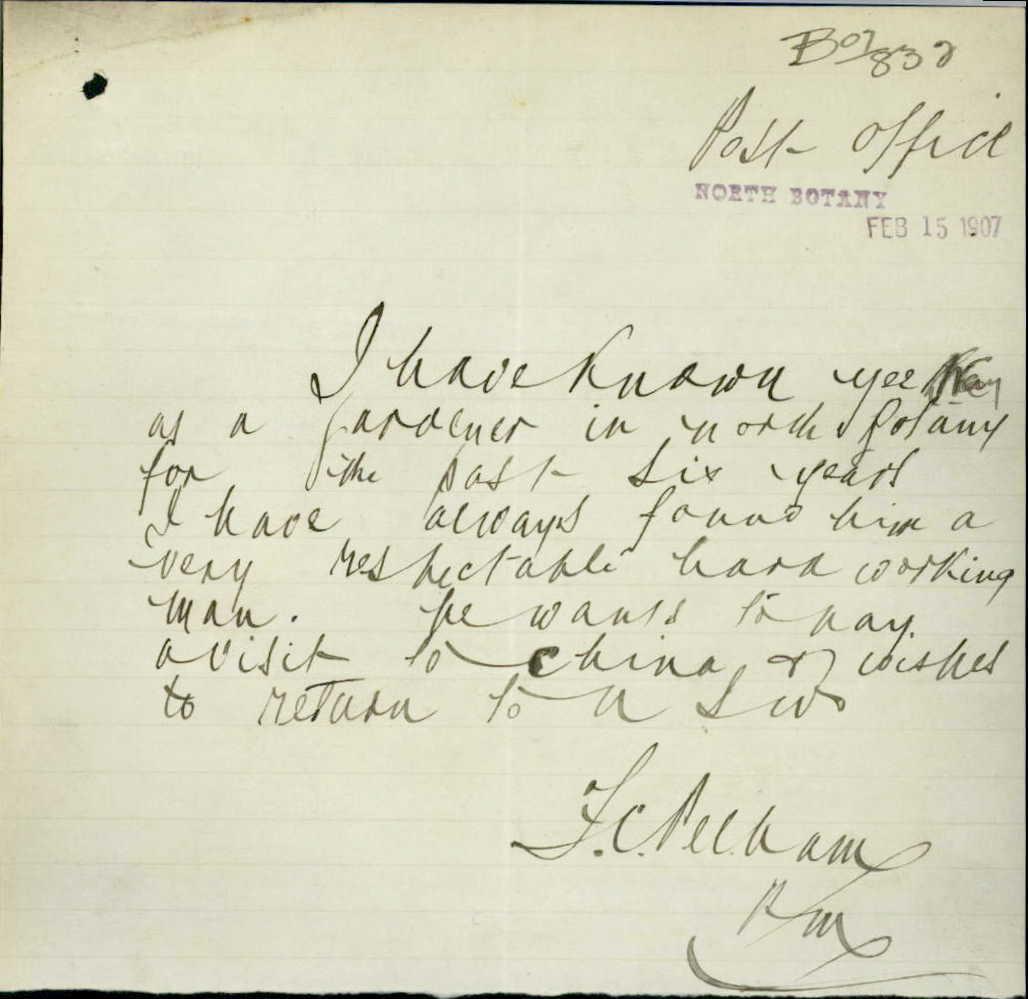 B07/832
Post Office
NORTH BOTANY
FEB 15 1907
I have Known yee
as a Gardener in north Botany
for the past six years
I have always found him a
very respectable hard working
man. he wants to pay
a visit to China & wishes
to return to N S W
F.C. Pelham
P M